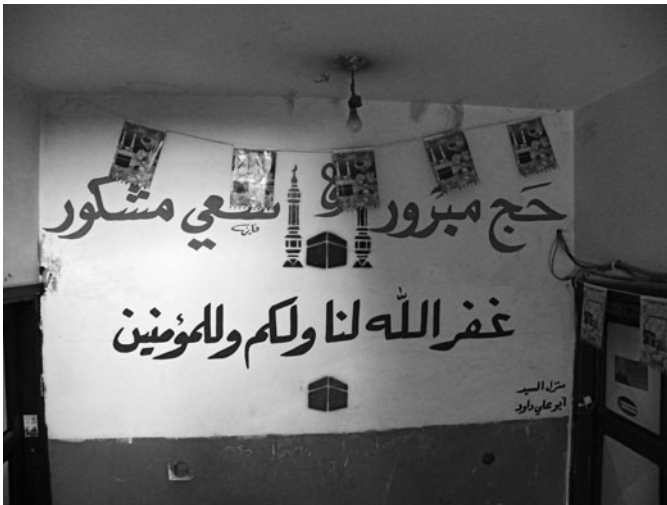 حَج مبَرور و سعي مشكور
غفر الله لنا ولكم وللمؤمنين
منزل السيد
أبو علي داود